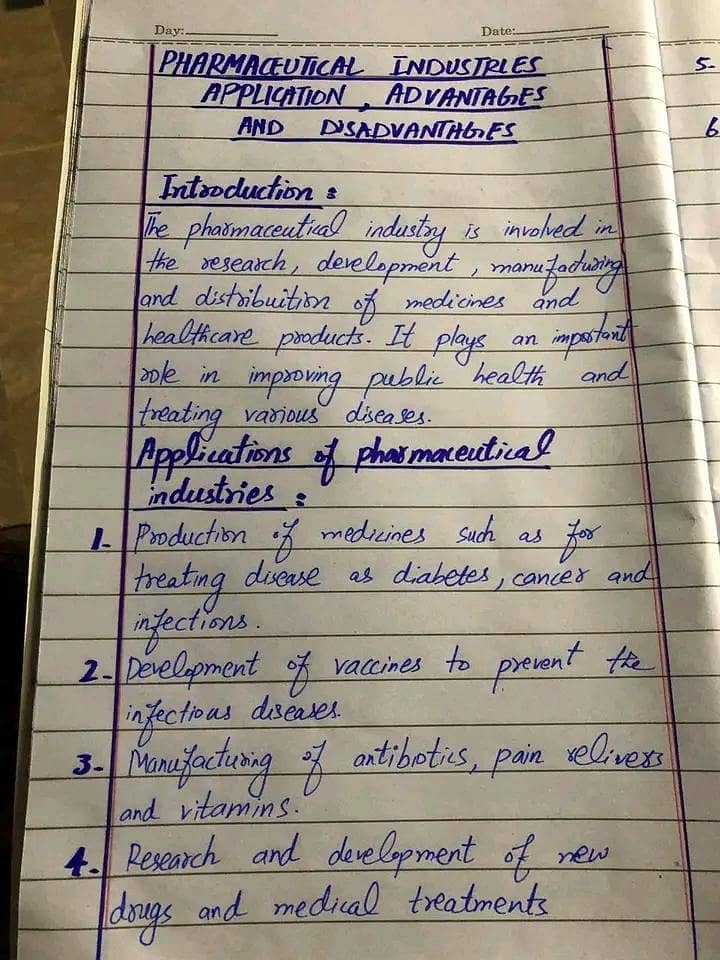 Day:
Date:
PHARMACEUTICAL INDUSTRIES
APPLICATION, ADVANTAGES
AND DISADVANTAGES
Introduction :
The pharmaceutical industry is involved in
the research, development, manufacturing
and distribuition of medicines and
healthcare products. It plays an important
role in improving public health and
treating various diseases.
Applications of pharmaceutical
industries :
1. Production of medicines such as for
treating disease as diabetes, cancer and
infections.
2- Development of vaccines to prevent the
infectious diseases.
3- Manufacturing of antibiotics, pain relivers
and vitamins.
4. Research and development of new
drugs and medical treatments
5-
6